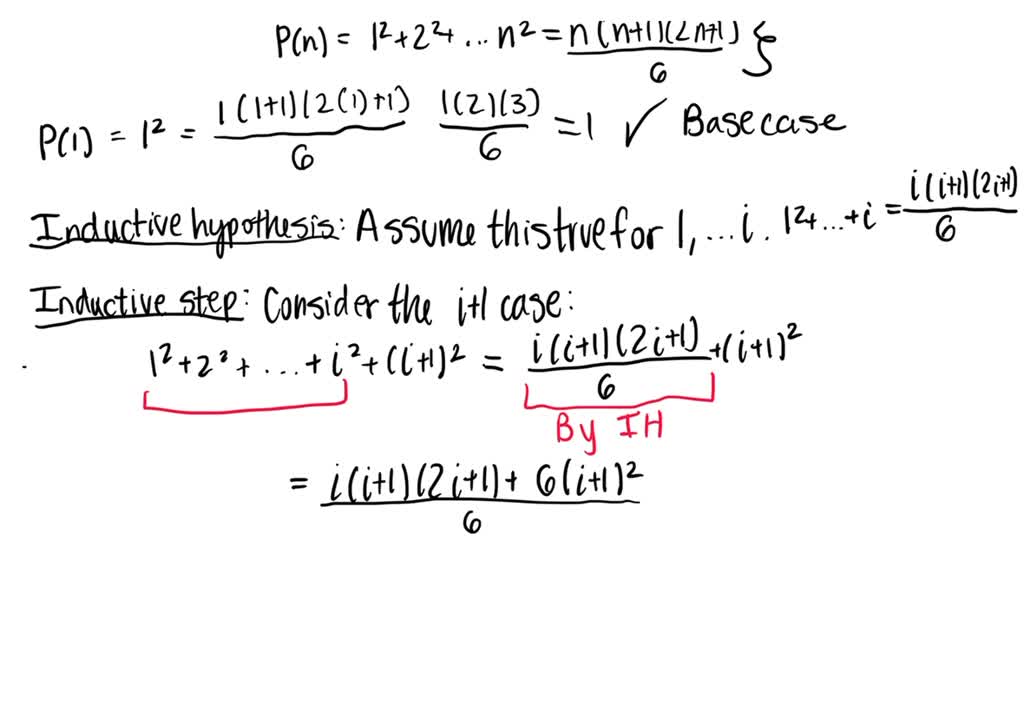 P(n) = 1²+2²+ ... n² = n(n+1)(2n+1)/6 }
P(1) = 1² = 1(1+1)(2(1)+1)/6 1(2)(3)/6 =1 ✓ Base case
Inductive hypothesis: Assume this true for 1, ... i. 1²+ ... +i = i(i+1)(2i+1)/6
Inductive step: Consider the i+1 case:
1²+2²+ ... +i²+(i+1)² = i(i+1)(2i+1)/6 +(i+1)²
By IH
= i(i+1)(2i+1)+ 6(i+1)²/6